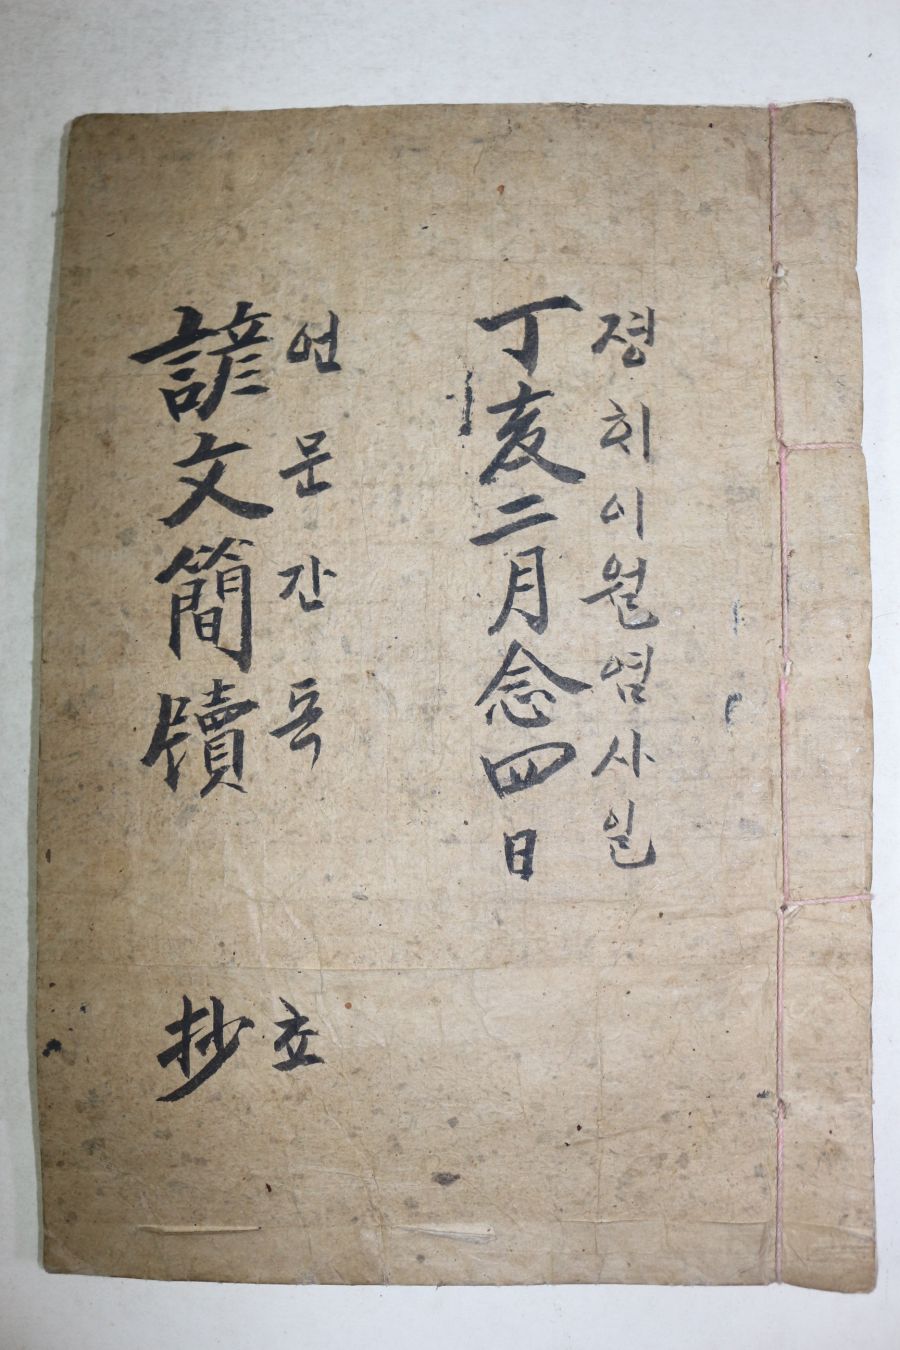 졍히이월염사일
丁亥二月念四日
언문간독 쵸
諺文簡牘 抄